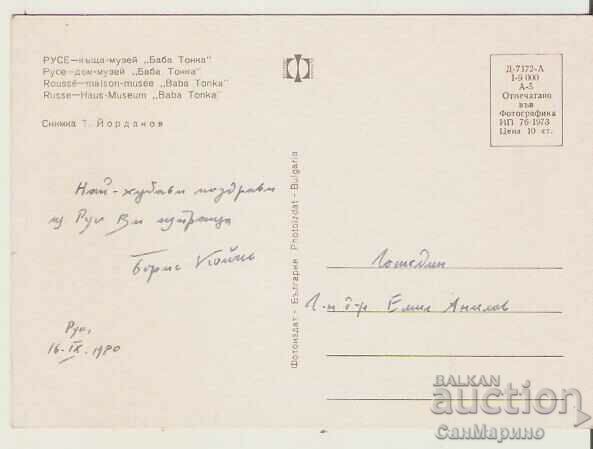 РУСЕ—къща-музей „Баба Тонка"
Русе—дом-музей „Баба Тонка"
Roussé—maison-musée „Baba Tonka"
Russe—Haus-Museum „Baba Tonka"
Снимка Т. Йорданов
Д-7172-А
I-9 000
А-5
Отпечатано
във
Фотографика
ИП 76-1973
Цена 10 ст.
Най-хубави поздрави
из Русе Ви изпраща
Борис
Русе,
16.IX.1980
Фотоиздат - България - Photoizdat - Bulgaria
Господин
Г-н д-р Емил Ангелов
BALKAN
auction
СанМарино